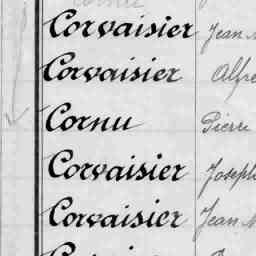 Corvaisier Jean
Corvaisier Alfre
Cornu Pierre
Corvaisier Joseph
Corvaisier Jean